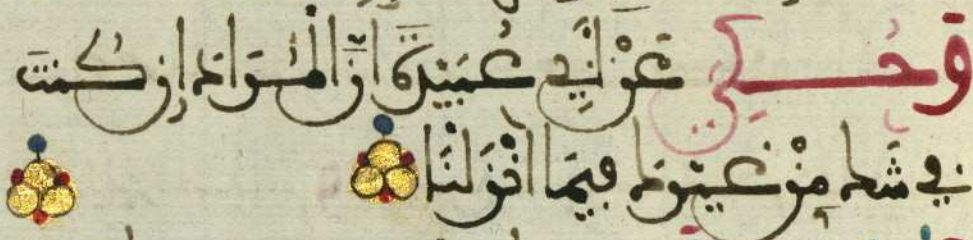 وحُكي عَنْ أَبِي عُبَيْدَةَ أنّ الْمُرَادَ إن كُنتَ
في شَك مِنْ غَيْرِك فِيمَا أَنْزَلْنَا